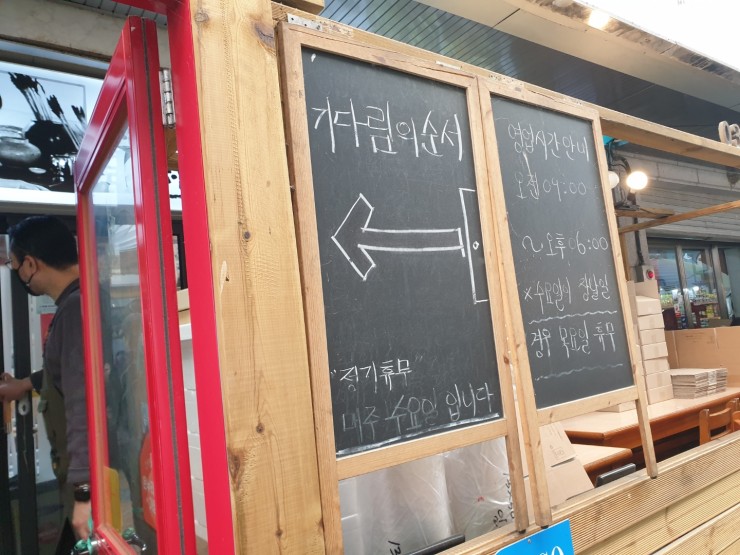 기다림의 순서
"정기휴무"
매주 수요일 입니다
영업시간 안내
오전 09:00
~ 오후 06:00
* 수요일이 장날일
경우 목요일 휴무